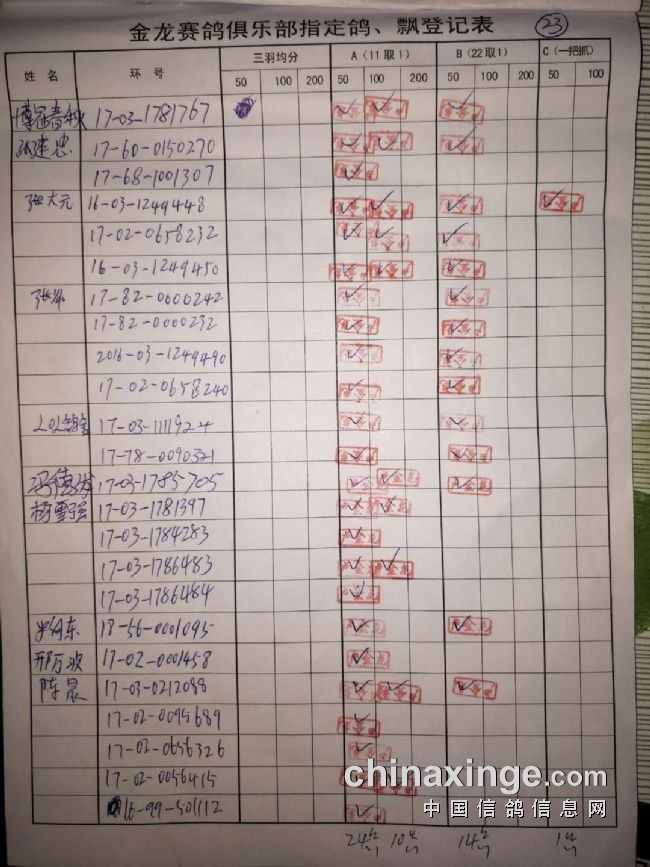 金龙赛鸽俱乐部指定鸽、飘登记表 23
姓 名 环 号 三羽均分 A（11取1） B（22取1） C（一把抓）
50 100 200 50 100 200 50 100 200 50 100
17-03-1781767
17-60-0150270
17-68-1001307
张大元 16-03-1249448
17-02-0658232
16-03-1249450
17-82-0000242
17-82-0000232
2016-03-1249490
17-02-0658240
17-03-1111924
17-78-0090321
冯德发 17-03-1785705
杨雪强 17-03-1781397
17-03-1784283
17-03-1786483
17-03-1786484
18-56-0001095
邢万波 17-02-0001458
陈晨 17-03-0212088
17-02-0095689
17-02-0656326
17-02-0056415
16-99-501112
24 10 14 1
chinaxinge.com
中国信鸽信息网